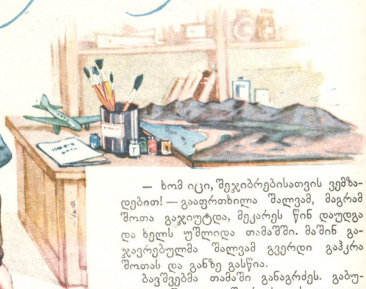 — ხომ იცი, შეჯიბრებისათვის ვემზა-
დებით! — გააფრთხილა შალვამ, მაგრამ
შოთა გაჯიუტდა, მეკარეს წინ დაუდგა
და ხელს უშლიდა თამაშში. მაშინ გა-
ჯავრებულმა შალვამ გვერდი გაჰკრა
შოთას და განზე გასწია.
ბავშვებმა თამაში განაგრძეს. გაბუ-